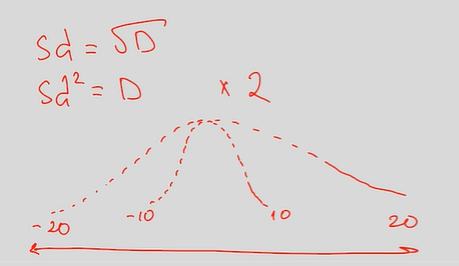 Sd = √D
Sd² = D
× 2
-20 -10 10 20